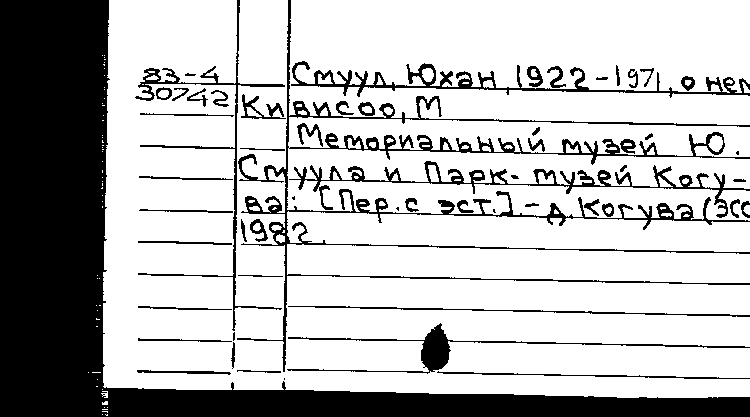 83-4 Смуул, Юхан, 1922-1971, о нем
30742 Кивисоо, М
Мемориальный музей Ю.
Смуула и Парк-музей Когу-
ва: [Пер. с эст.].-д. Когува (ЭСС
1982.